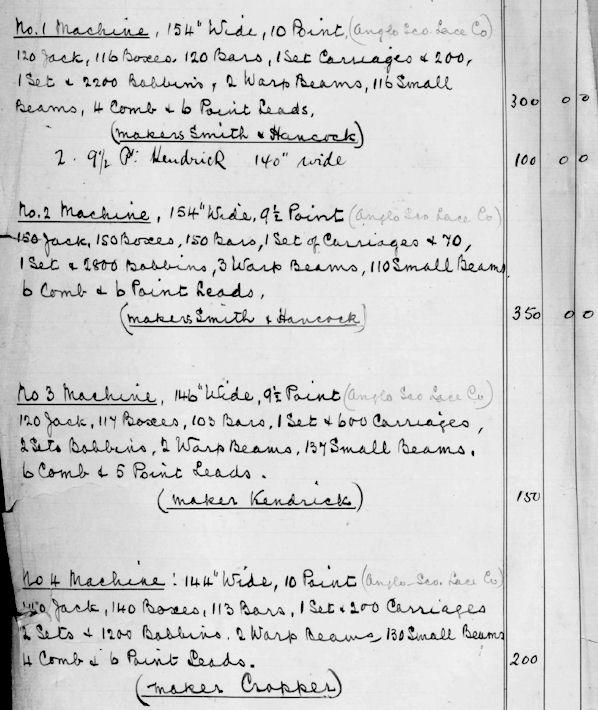 No. 1 Machine, 154" Wide, 10 Point, (Anglo Sco. Lace Co)
120 Jack, 116 Boxes. 120 Bars, 1 Set Carriages & 200,
1 Set & 2200 Bobbins, 2 Warp Beams, 116 Small
Beams, 4 Comb & 6 Point Leads, 300 0 0
(makers Smith & Hancock)
2. 9½ Pt. Kendrick 140" wide 100 0 0
No. 2 Machine, 154" Wide, 9½ Point (Anglo Sco Lace Co)
150 Jack, 150 Boxes, 150 Bars, 1 Set of Carriages & 70,
1 Set & 2800 Bobbins, 3 Warp Beams, 110 Small Beams
6 Comb & 6 Point Leads,
(makers Smith & Hancock) 350 0 0
No 3 Machine, 146" Wide, 9½ Point (Anglo Sco Lace Co)
120 Jack, 117 Boxes, 103 Bars, 1 Set & 600 Carriages,
2 Sets Bobbins, 2 Warp Beams, 137 Small Beams.
6 Comb & 5 Point Leads.
(maker Kendrick) 150
No 4 Machine: 144" Wide, 10 Point (Anglo-Sco. Lace Co)
Jack, 140 Boxes, 113 Bars, 1 Set & 200 Carriages
2 Sets & 1200 Bobbins. 2 Warp Beams, 130 Small Beams
4 Comb & 6 Point Leads. 200
(maker Cropper)